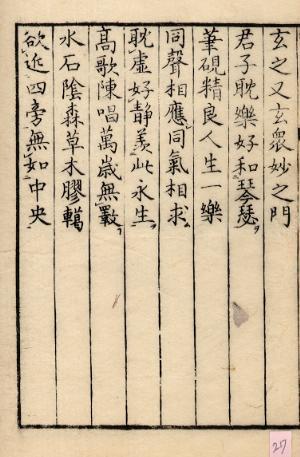 玄之又玄衆妙之門
君子耽樂好和琴瑟
筆硯精良人生一樂
同聲相應同氣相求
耽虛好静羨此永生
高歌陳唱萬歲無斁
水石陰森草木膠轕
欲近四旁無如中央
27